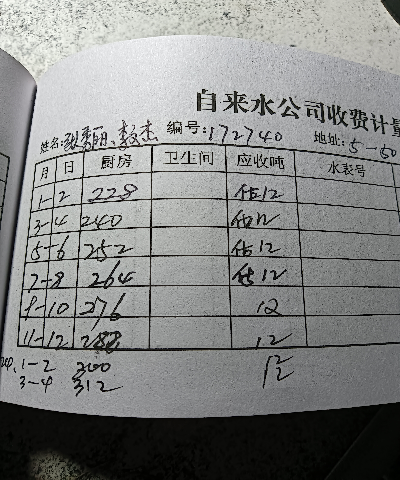 自来水公司收费计量
姓名:张秀丽、 编号:172740 地址:5-50
月 日 厨房 卫生间 应收吨 水表号
1-2 228 估12
3-4 240 估12
5-6 252 估12
7-8 264 估12
9-10 276 12
11-12 288 12
1-2 300 12
3-4 312 12